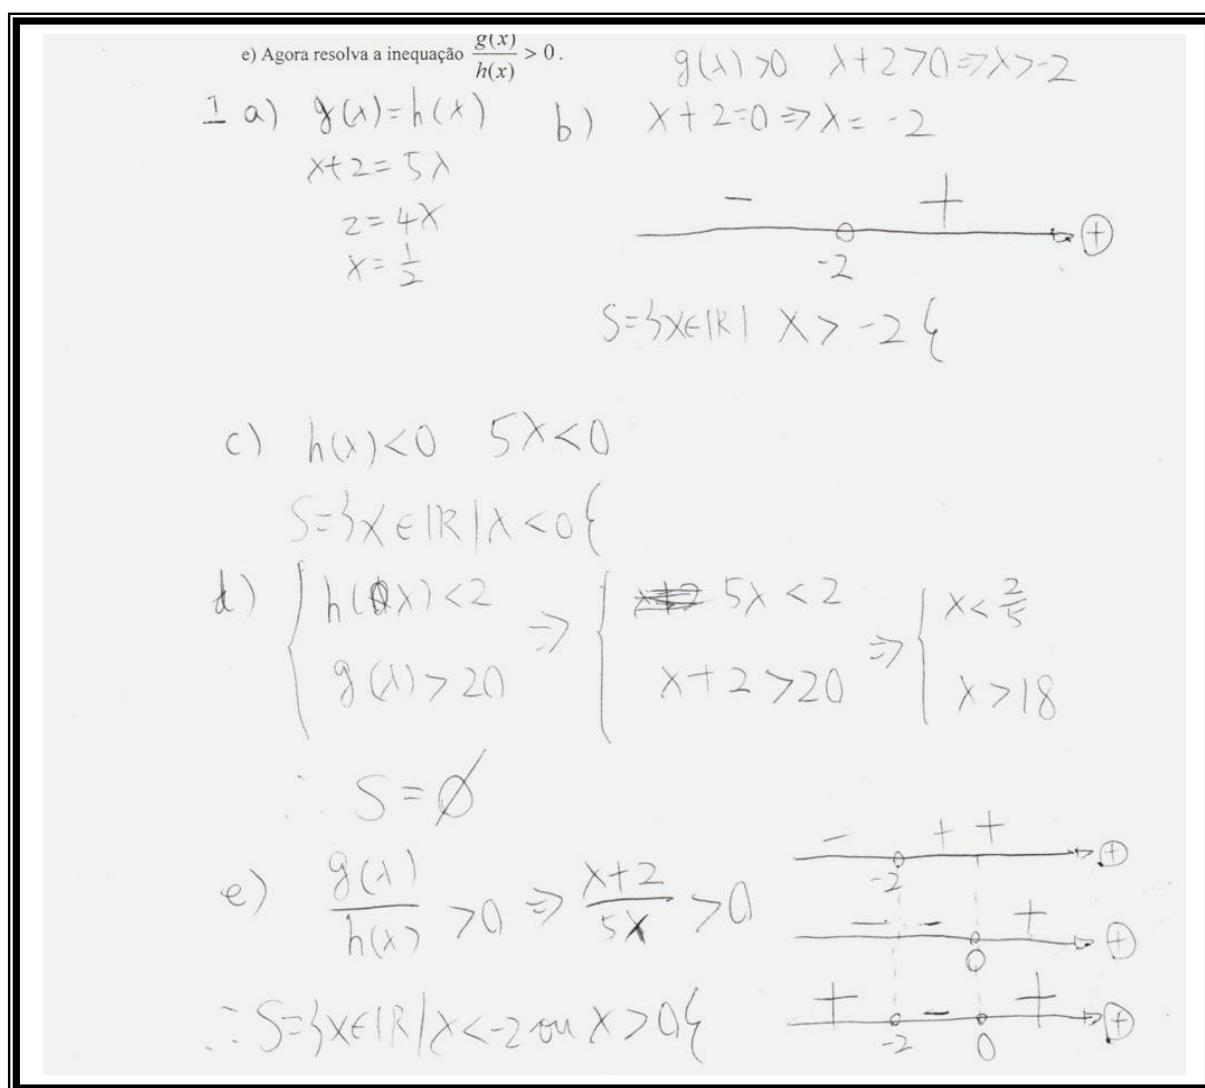 e) Agora resolva a inequação g(x)/h(x) > 0 .
g(x)>0 x+2>0 ⇒ x>-2
1 a) g(x)=h(x)
x+2=5x
2=4x
x=1/2
b) x+2=0 ⇒ x=-2
- + ⊕
-2
S=}x∈ℝ| x>-2{
c) h(x)<0 5x<0
S=}x∈ℝ|x<0{
d) { h(x)<2 ⇒ { 5x<2 ⇒ { x<2/5
g(x)>20 x+2>20 x>18
∴ S=∅
e) g(x)/h(x) >0 ⇒ x+2/5x >0
- + + ⊕
-2
- - + ⊕
0
+ - + ⊕
-2 0
∴ S=}x∈ℝ|x<-2 ou x>0{